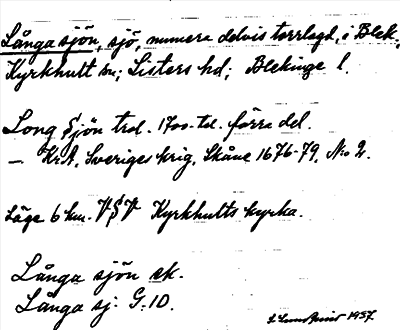 Långa sjön, sjö, numera delvis torrlagd, i Blek.,
Kyrkhult sn; Listers hd; Blekinge l.
Long Sjön trol. 1700-tal. förra del.
— Kr.A, Sveriges krig, Skåne 1676-79, No 2.
Läge 6 km. VSV Kyrkhults kyrka.
Långa sjön ek.
Långa sj. G:1D.
1957.